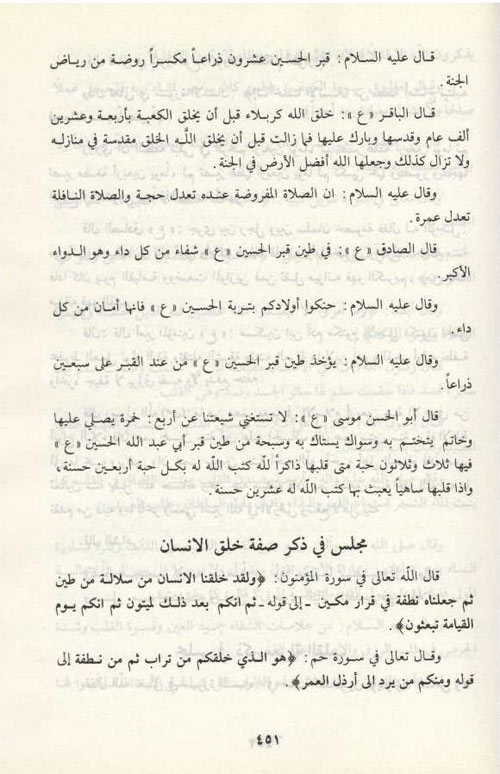 قال عليه السلام: قبر الحسين عشرون ذراعاً مكسراً روضة من رياض
الجنة.
قال الباقر «ع»: خلق الله كربلاء قبل أن يخلق الكعبة بأربعة وعشرين
ألف عام وقدسها وبارك عليها فما زالت قبل أن يخلق اللّه الخلق مقدسة في منازله
ولا تزال كذلك وجعلها الله أفضل الأرض في الجنة.
وقال عليه السلام: ان الصلاة المفروضة عنده تعدل حجة والصلاة النافلة
تعدل عمرة.
قال الصادق «ع»: في طين قبر الحسين «ع» شفاء من كل داء وهو الدواء
الأكبر.
وقال عليه السلام: حنكوا أولادكم بتربة الحسين «ع» فانها أمان من كل
داء.
وقال عليه السلام: يؤخذ طين قبر الحسين «ع» من عند القبر على سبعين
ذراعاً.
قال أبو الحسن موسى «ع»: لا تستغني شيعتنا عن أربع: خمرة يصلي عليها
وخاتم يتختم به وسواك يستاك به وسبحة من طين قبر أبي عبد الله الحسين «ع»
فيها ثلاث وثلاثون حبة متى قلبها ذاكراً للّه كتب اللّه له بكل حبة أربعين حسنة،
واذا قلبها ساهياً يعبث بها كتب الله له عشرين حسنة.
مجلس في ذكر صفة خلق الانسان
قال اللّه تعالى في سورة المؤمنون: ﴿ولقد خلقنا الانسان من سلالة من طين
ثم جعلناه نطفة في قرار مكين - إلى قوله - ثم انكم بعد ذلك لميتون ثم انكم يوم
القيامة تبعثون﴾.
وقال تعالى في سورة حم: ﴿هو الذي خلقكم من تراب ثم من نطفة إلى
قوله ومنكم من يرد الى أرذل العمر﴾.
٤٥١